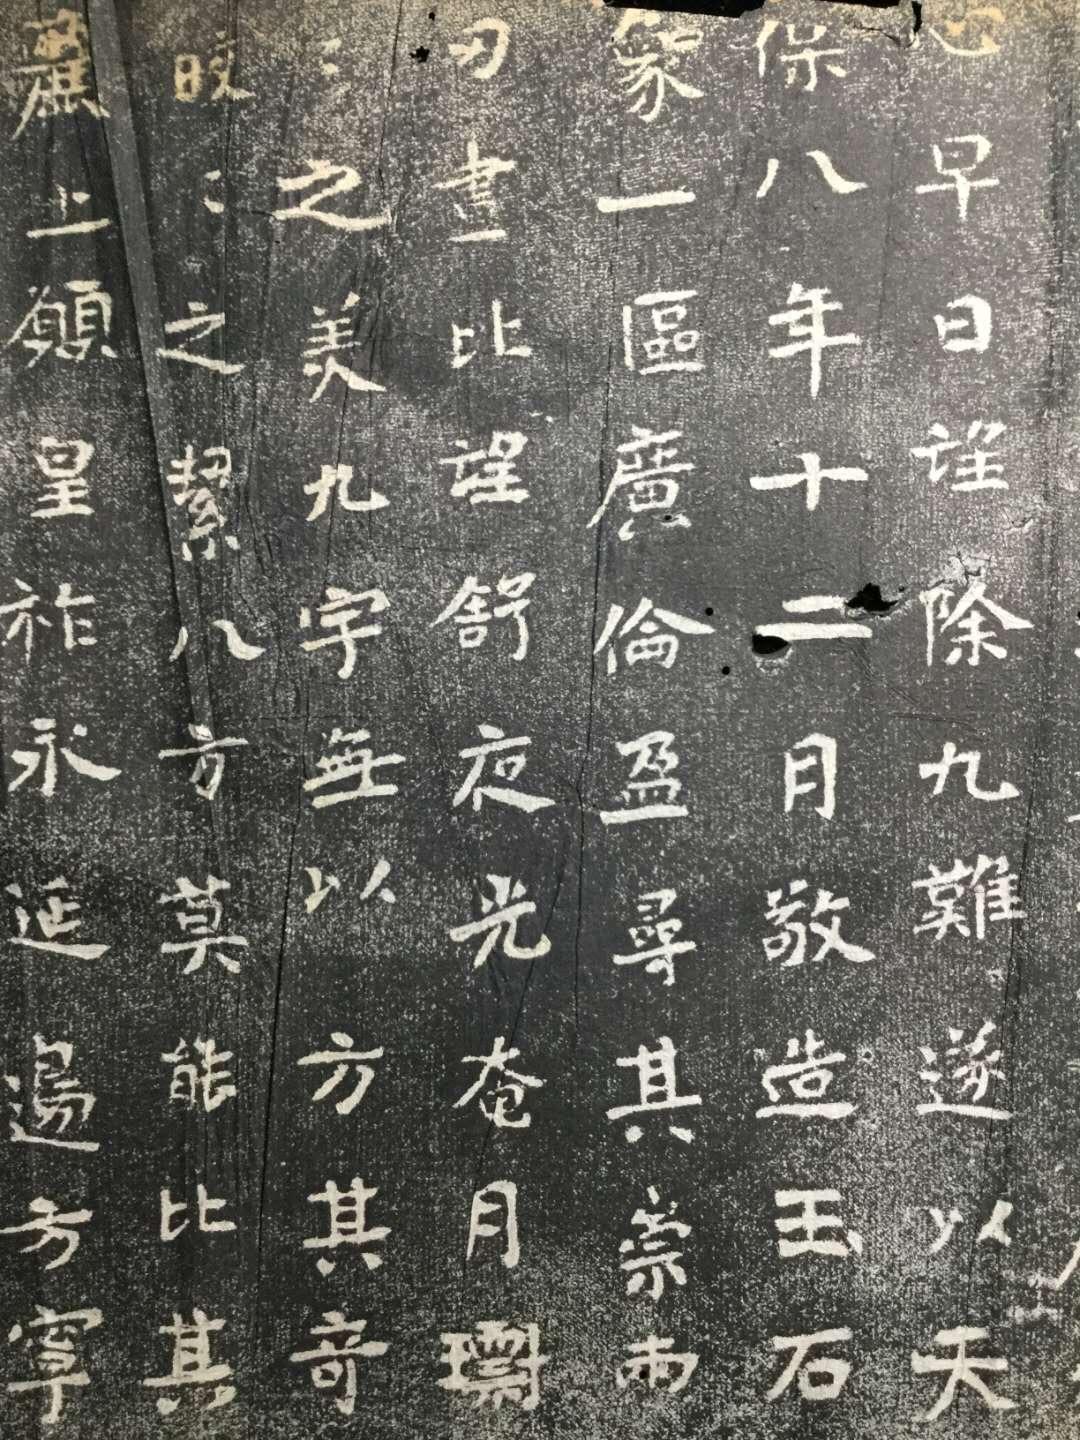 心早日詮除九難遂以天
保八年十二月敬造玉石
象一區廣倫盈尋其崇雨
刃晝比望舒夜光奄月
〻之美九字無以方其奇
皎〻之絜八方莫能比其
麗上願皇祚永延邊方寧